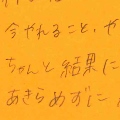 今やれること、や
ちゃんと結果に
あきらめずに